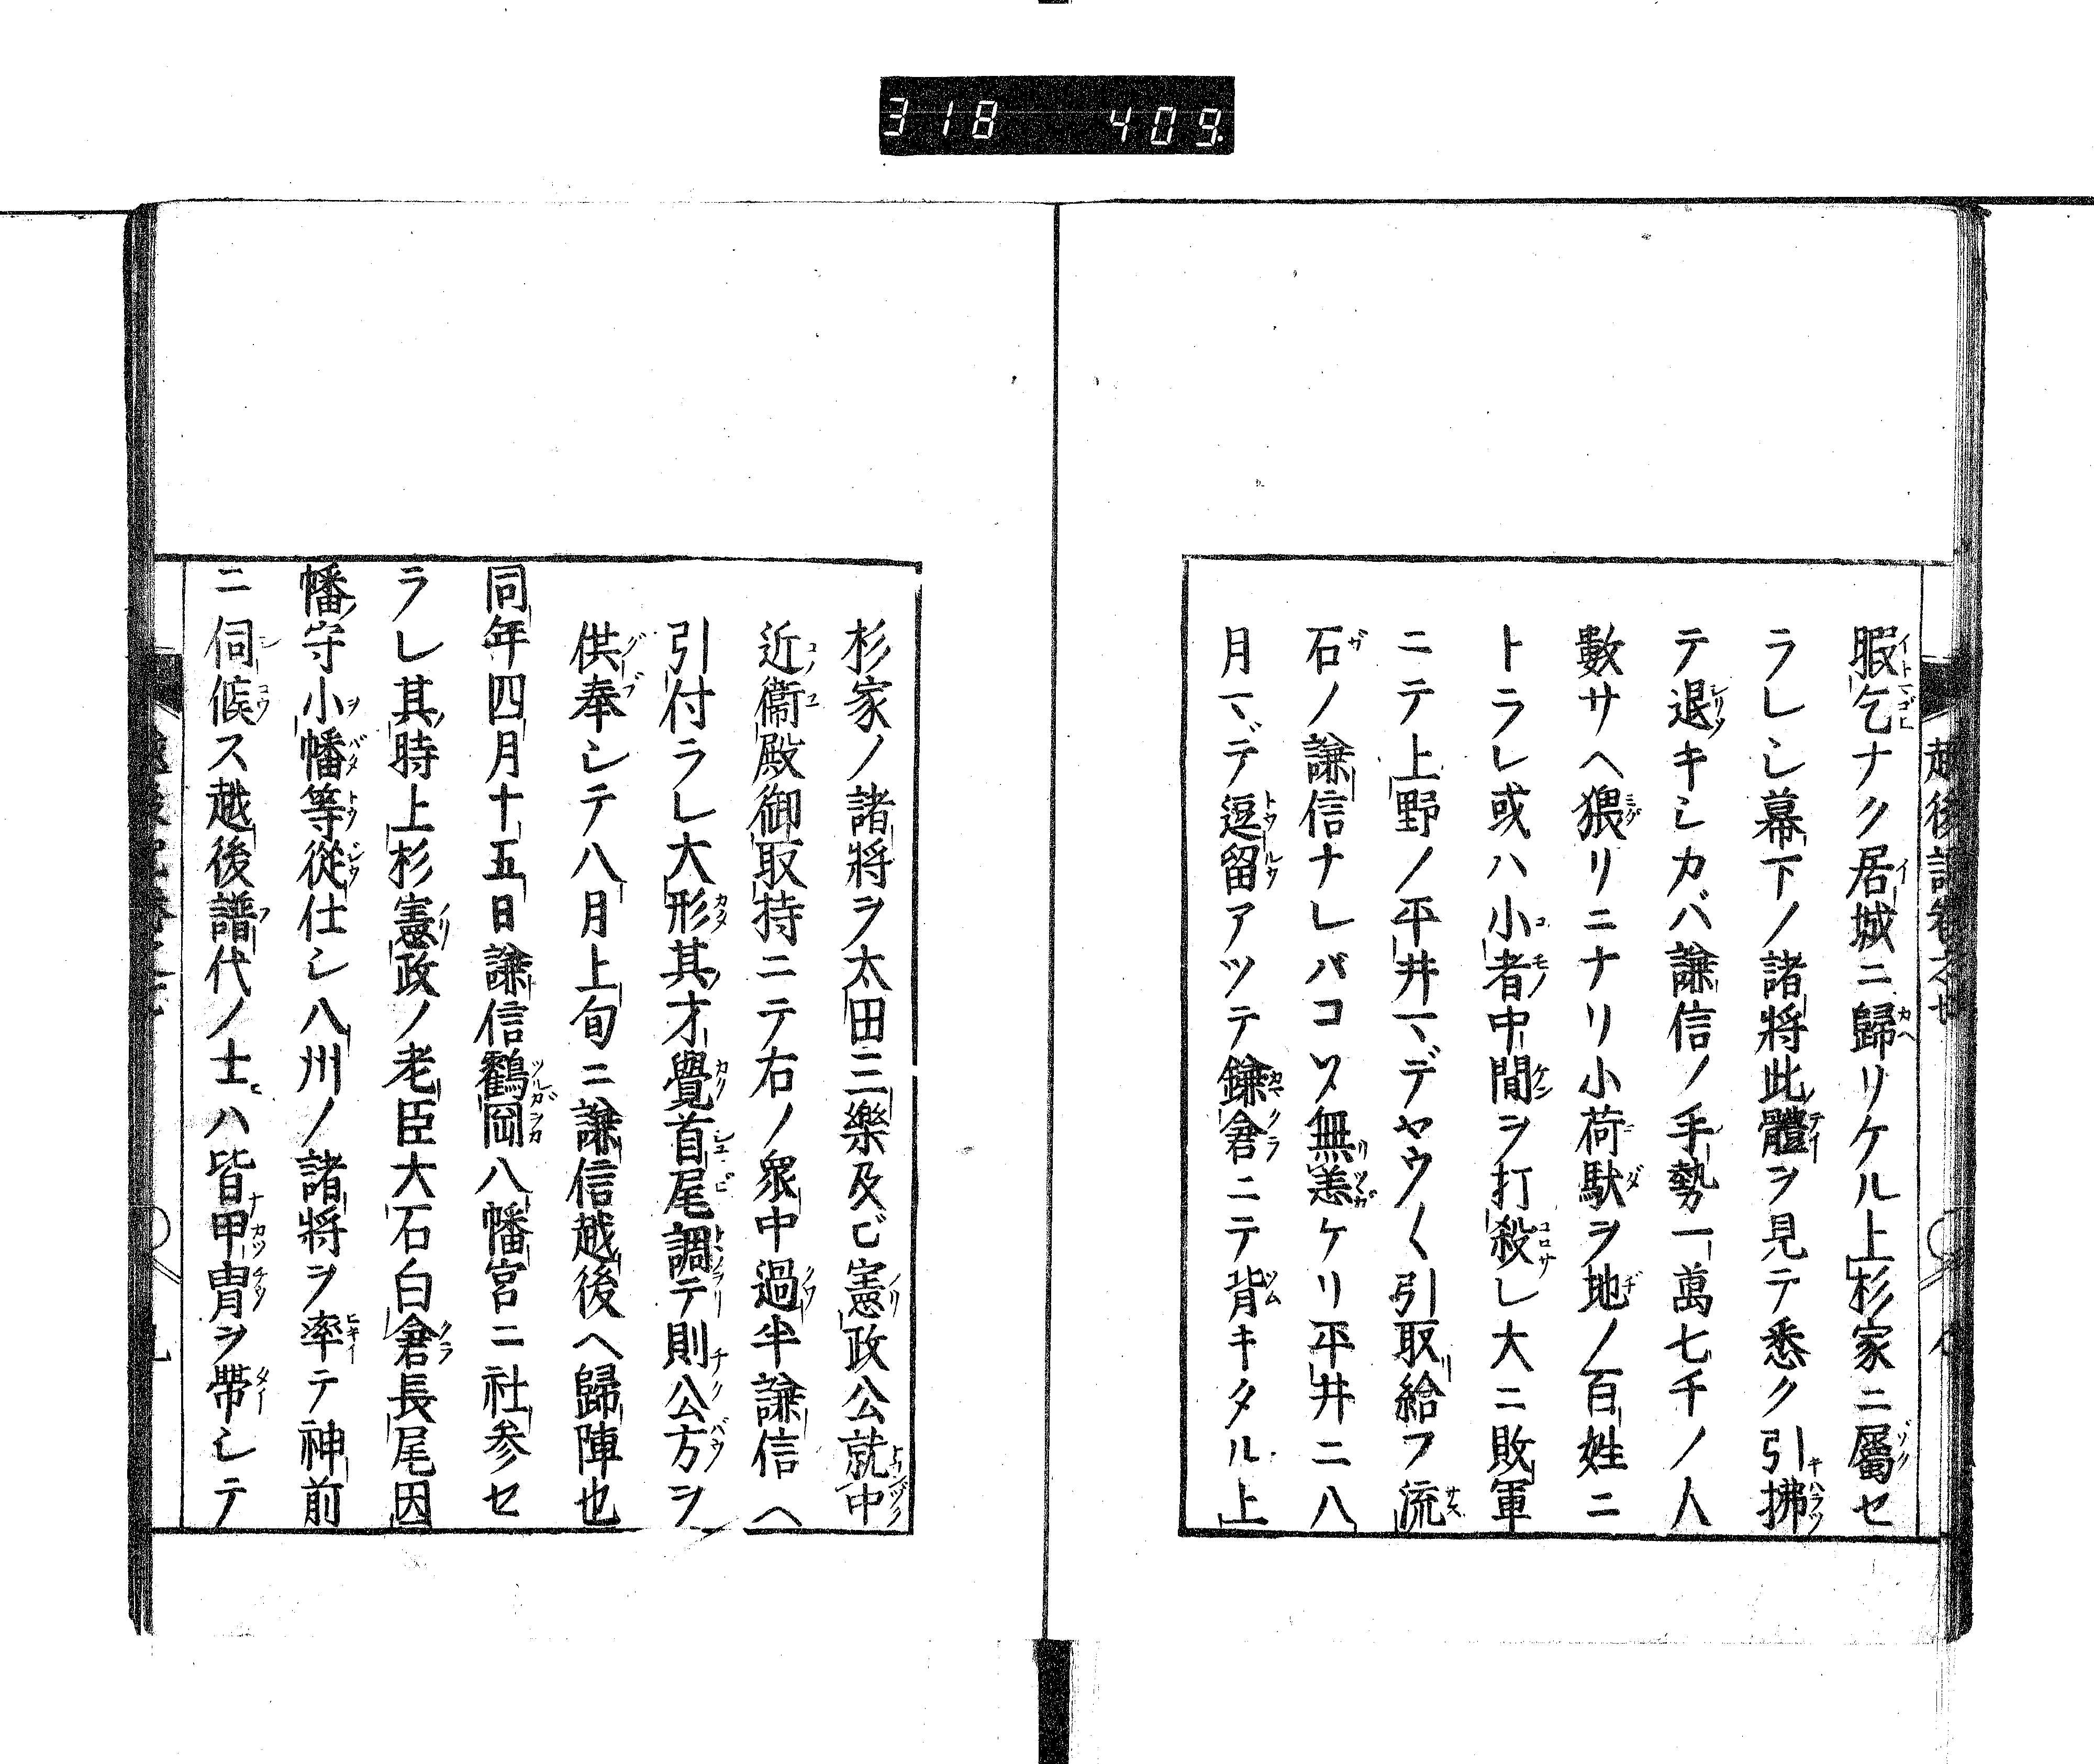 318 409
暇乞ナク居城ニ歸リケル上杉家ニ屬セ
ラレシ幕下ノ諸將此體ヲ見テ悉ク引拂
テ退キシカバ謙信ノ手勢一萬七千ノ人
數サヘ猥リニナリ小荷駄ヲ地ノ百姓ニ
トラレ或ハ小者中間ヲ打殺レ大ニ敗軍
ニテ上野ノ平井マデヤウ〳〵引取給フ流
石ノ謙信ナレバコソ無恙ケリ平井ニ八
月マデ逗留アツテ鎌倉ニテ背キタル上
杉家ノ諸將ヲ太田三樂及ビ憲政公就中
近衞殿御取持ニテ右ノ衆中過半謙信ヘ
引付ラレ大形其才覺首尾調テ則公方ヲ
供奉シテ八月上旬ニ謙信越後ヘ歸陣也
同年四月十五日謙信鶴岡八幡宮ニ社参セ
ラレ其時上杉憲政ノ老臣大石白倉長尾因
幡守小幡等從仕シ八州ノ諸將ヲ率テ神前
ニ伺候ス越後譜代ノ士ハ皆甲冑ヲ帶シテ